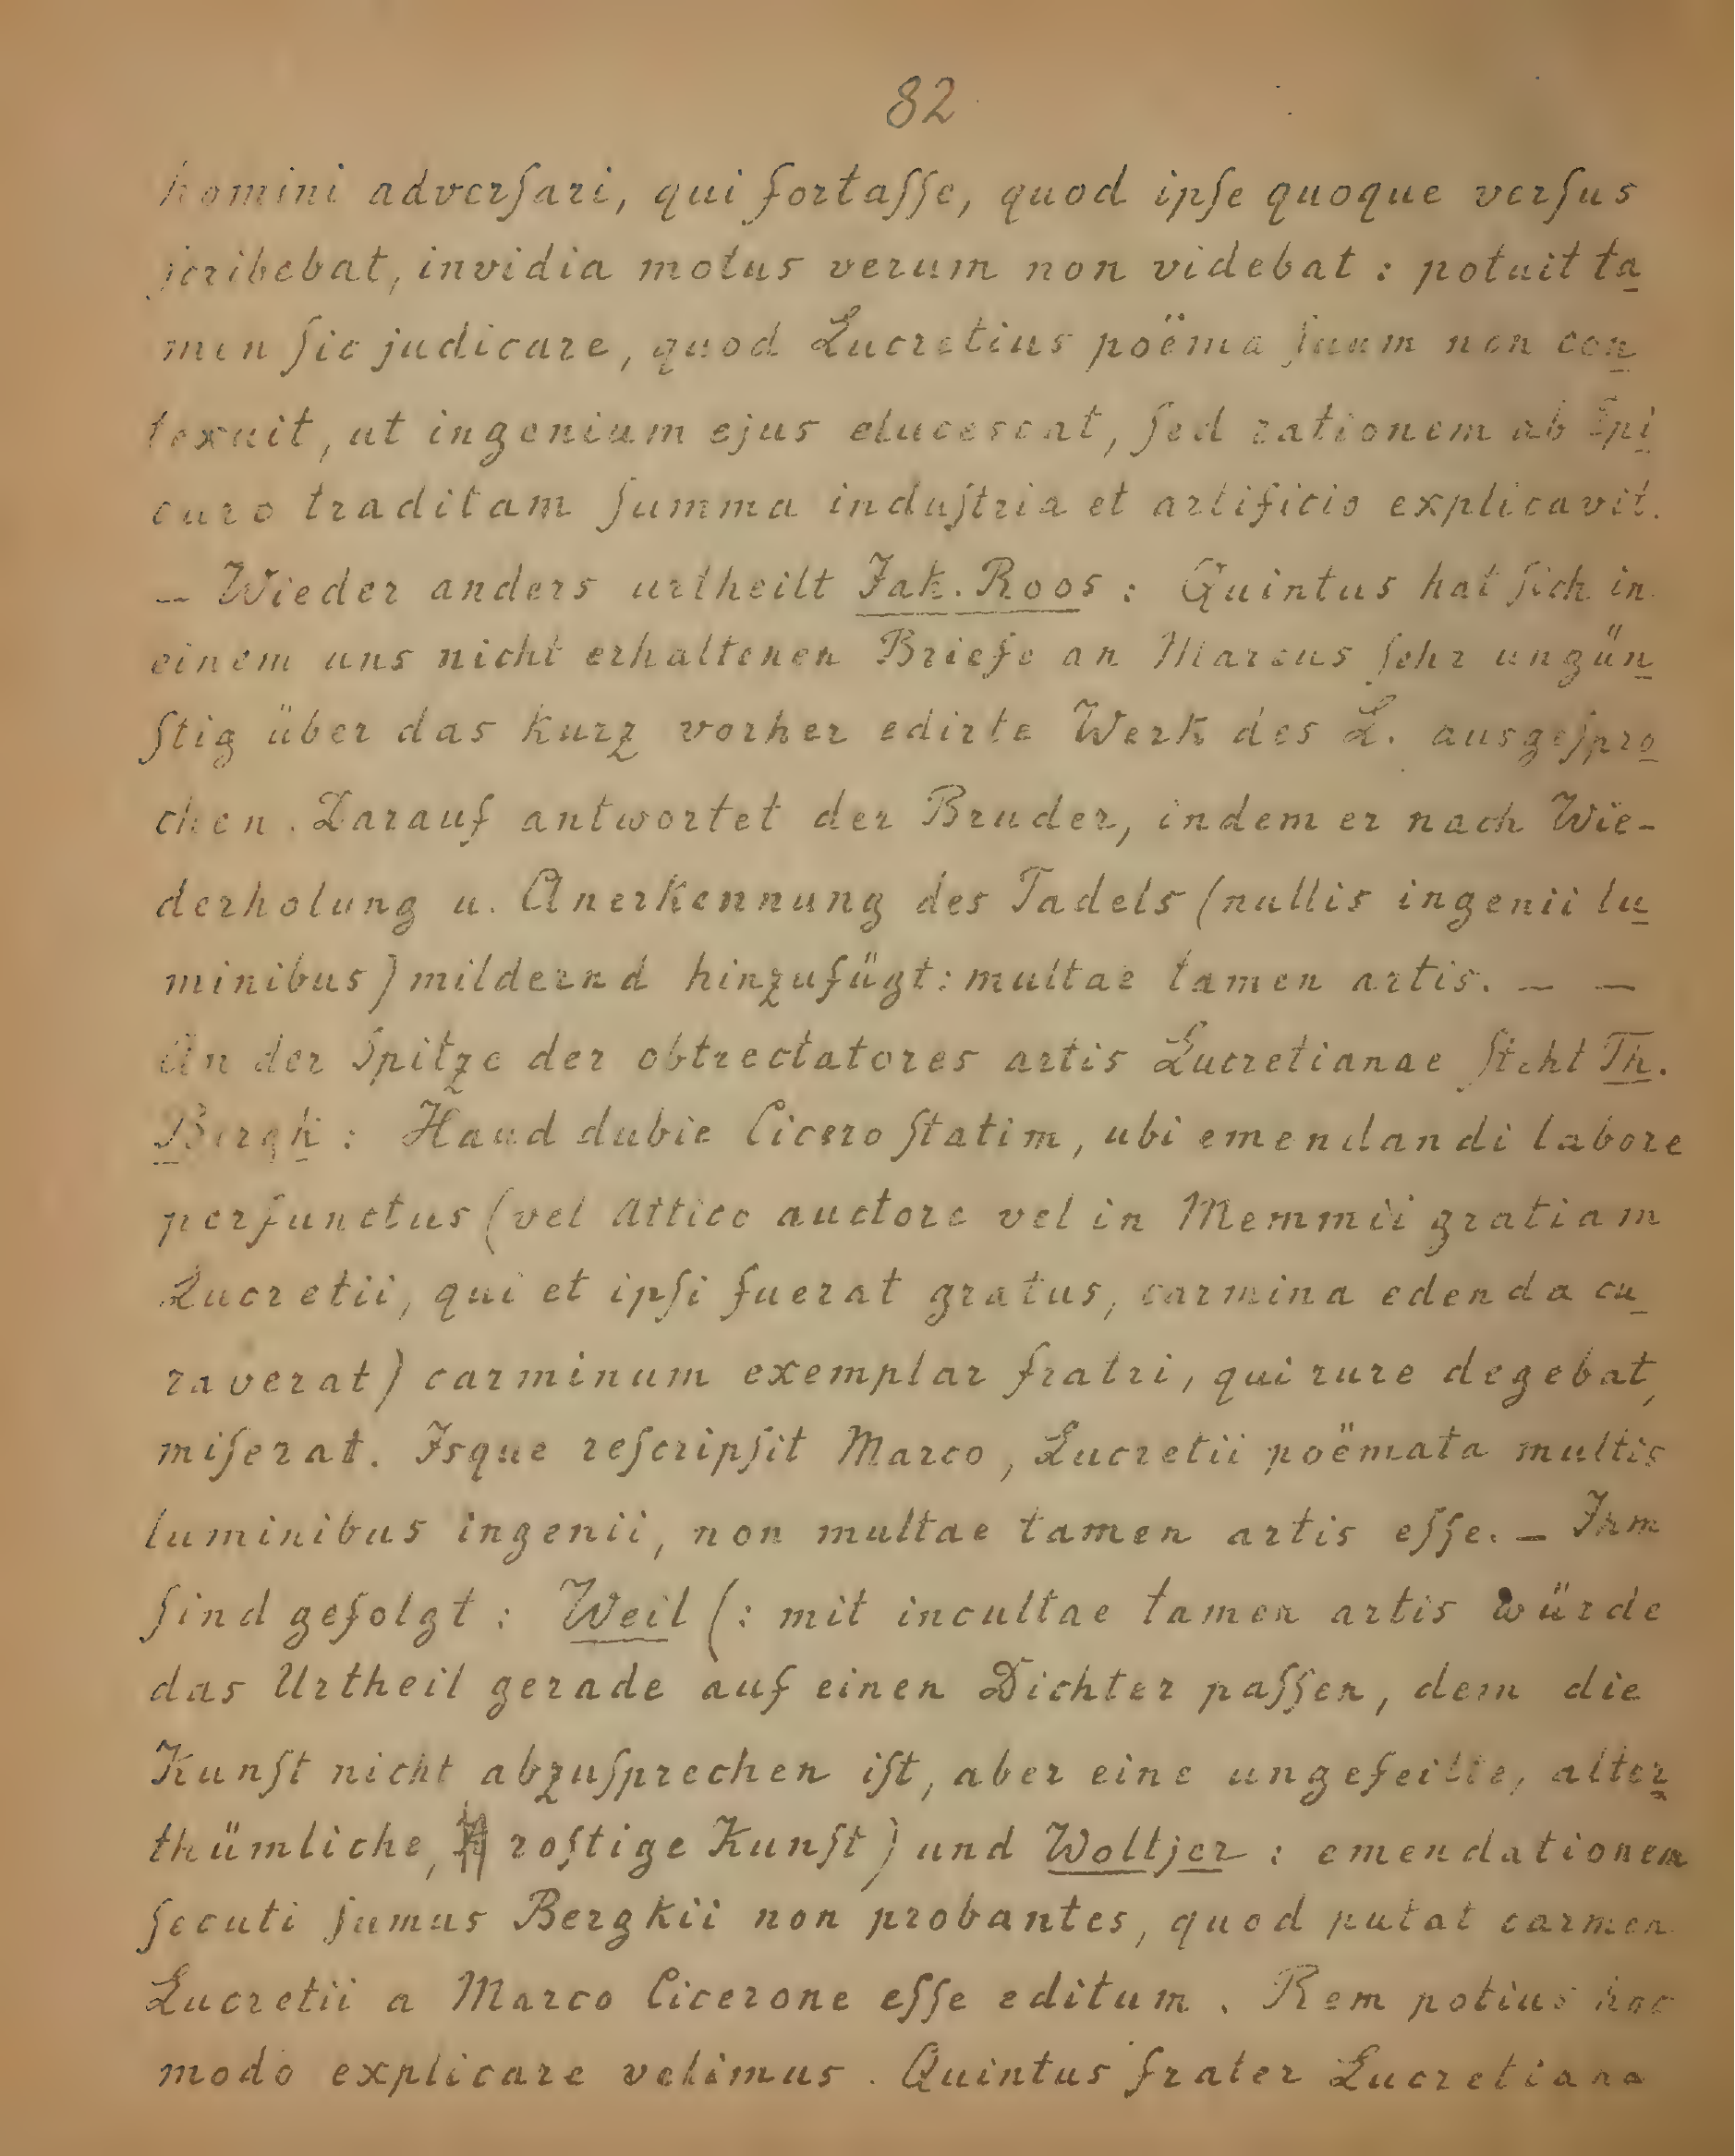 82
homini adverſari, qui fortaſſe, quod ipſe quoque verſus
ſcribebat, invidia motus verum non videbat : potuit ta
men ſic judicare, quod Lucretius poëma ſuum non con
texuit, ut ingenium ejus elucescat, ſed rationem ab Epi
curo traditam ſumma induſtria et artificio explicavit.
— Wieder anders urtheilt Jak. Roos : Quintus hat ſich in
einem uns nicht erhaltenen Briefe an Marcus ſehr ungün
ſtig über das kurz vorher edirte Werk des L. ausgeſpro
chen. Darauf antwortet der Bruder, indem er nach Wie-
derholung u. Anerkennung des Tadels (nullis ingenii lu
minibus) mildernd hinzufügt: multae tamen artis. — —
An der Spitze der obtrectatores artis Lucretianae ſteht Th.
Bergk : Haud dubie Cicero ſtatim, ubi emendandi labore
perfunctus (vel Attico auctore vel in Memmii gratiam
Lucretii, qui et ipſi fuerat gratus, carmina edenda cu
raverat) carminum exemplar fratri, qui rure degebat,
miſerat. Isque reſcripſit Marco, Lucretii poëmata multis
luminibus ingenii, non multae tamen artis eſſe. — Ihm
ſind gefolgt : Weil (: mit incultae tamen artis würde
das Urtheil gerade auf einen Dichter paſſen, dem die
Kunſt nicht abzuſprechen iſt, aber eine ungefeilte, alter
thümliche, roſtige Kunſt) und Woltjer : emendationem
ſecuti ſumus Bergkii non probantes, quod putat carmen
Lucretii a Marco Cicerone eſſe editum. Rem potius hoc
modo explicare velimus. Quintus frater Lucretiana